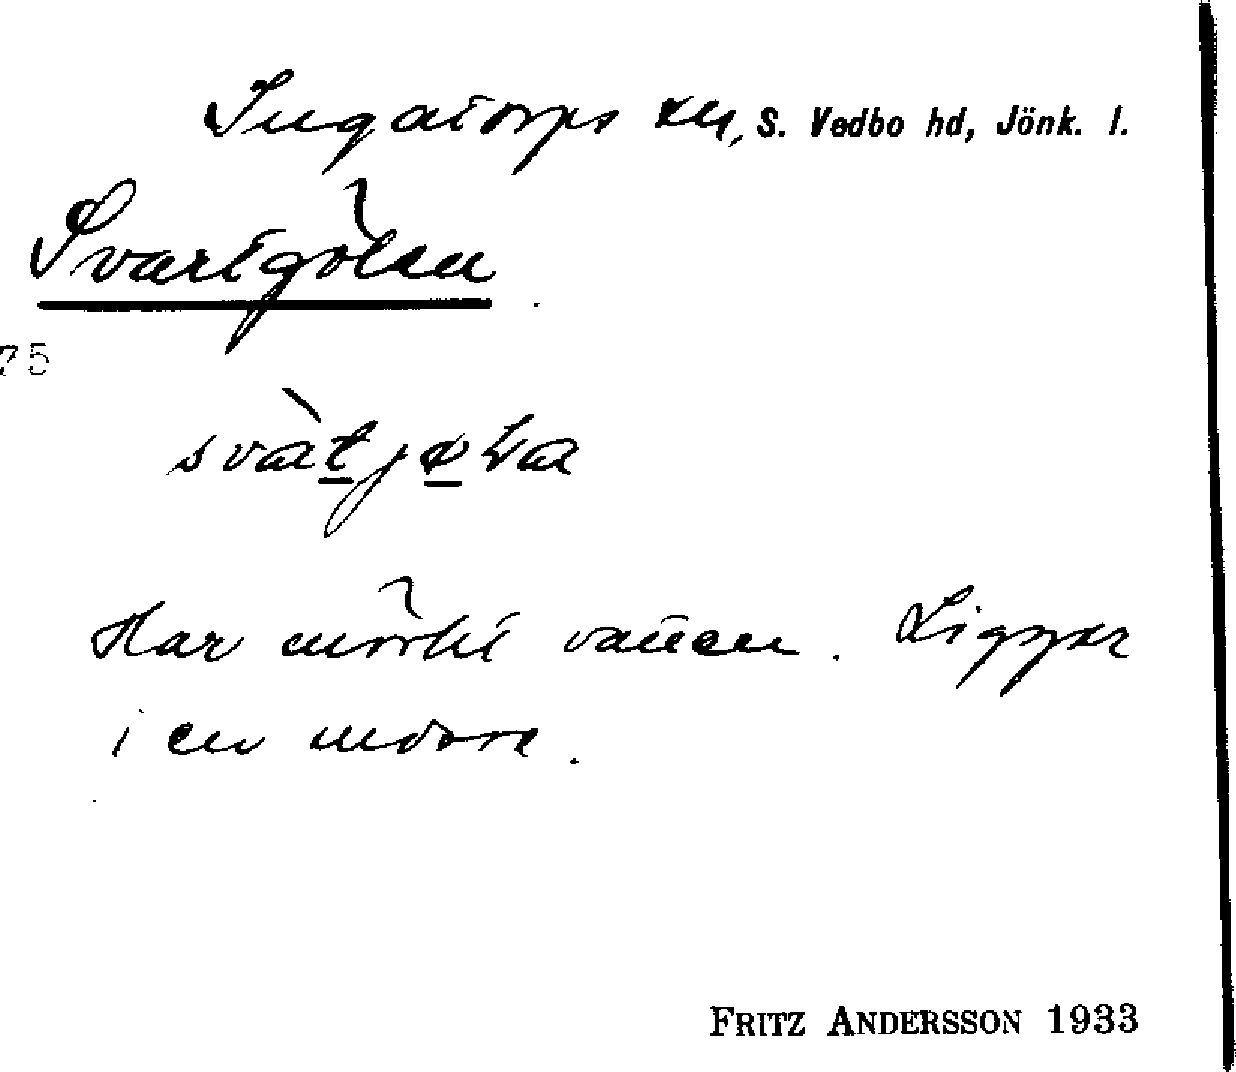 Ingatorps sn, S. Vedbo hd, Jönk. l.
Svartgölen
75
Har mörkt vatten. Ligger
i en mosse.
FRITZ ANDERSSON 1933